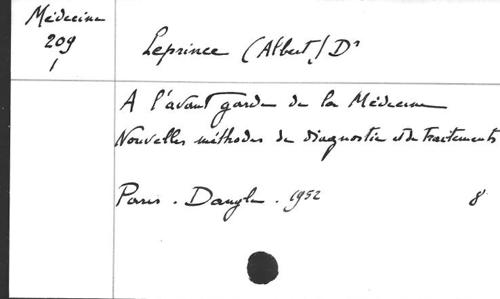 Médecine
209
1
Leprince (Albert) Dr
A l'avant garde de la Médecine
Nouvelles méthodes de diagnostic et de traitements
Paris. Dangles. 1952 8